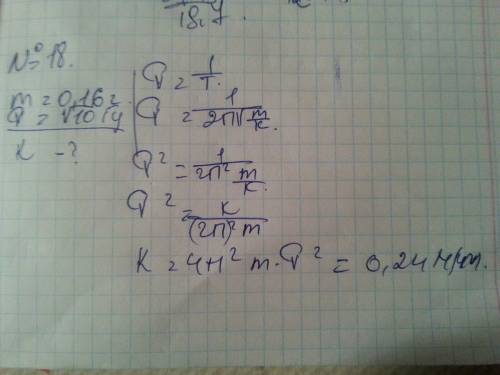 18,7.
№ 18.
m = 0,16 г.
ν = 410 Гц
K - ?
ν = 1/T.
ν = 1/2π√m/K.
ν² = 1/2π² m/K.
ν² = K/(2π)² m
K = 4π² m · ν² = 0,24 Н/м.